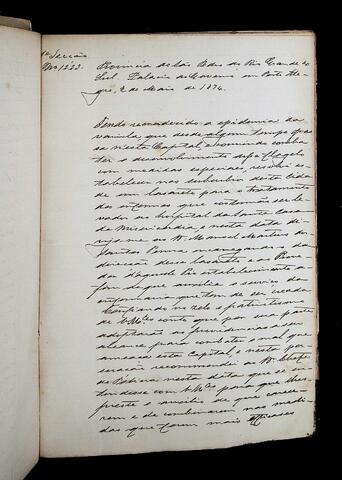 1ª Secção
Nº 1222.
Provincia de São Pedro do Rio Grande do
Sul. Palacio do Governo em Porto Ale-
gre, 2 de Maio de 1874.
Tendo recrudescido a epidemia da
variola, que desde algum tempo gras-
sa nesta Capital, e convindo comba-
ter o desenvolvimento desse flagelo
com medidas especiaes, resolvi es-
tabelecer nos suburbios desta cida-
de um lasareto para o tratamento
dos enfermos que costumão ser le-
vados ao hospital da Santa Casa
de Misericordia, e nesta data di-
rijo-me ao Dr. Manoel Martins dos
Santos Penna encarregando-o da
direcção desse lasareto e ao Prove-
dor d'aquelle Pio estabelecimento a-
fim de que auxilie o serviço da
enfermaria que tem de ser creada
Confiando no zelo e patriotismo
de V. Mces. conto que por sua parte
adoptarão as providencias a seu
alcance para combater o mal que
ameaça esta Capital, e nesta
recommendei ao Dr. Chefe
de Policia nesta data que se en-
tendesse com V. Mces. para que lhes
preste o auxilio de que carece-
rem e de combinarem nas medi-
das que forem mais efficases